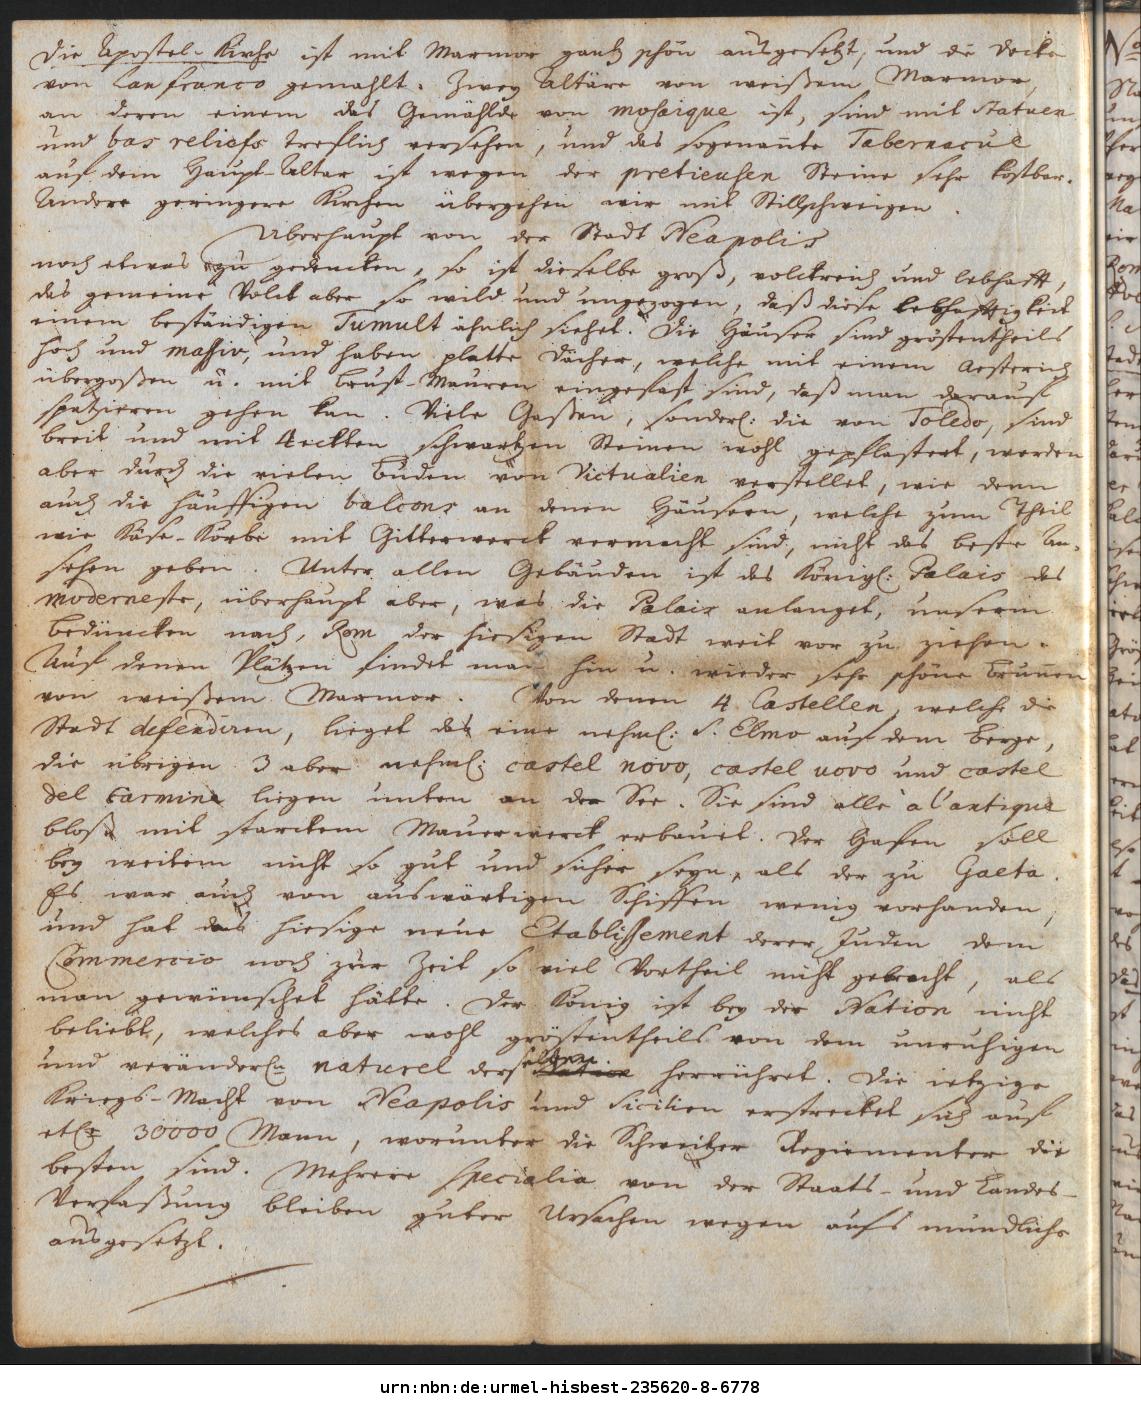 Die Apostel-Kirche ist mit Marmor gantz schön ausgesetzt, und die Decke
von Lanfranco gemahlt. Zwey Altäre von weißem Marmor,
an deren einem das Gemählde von mosaique ist, sind mit Statuen
und bas reliefs treflich versehen, und das sogenañte Tabernacul
auf dem Haupt-Altar ist wegen der pretieusen Steine sehr kostbar.
Andere geringere Kirchen übergehen wir mit Stillschweigen.
Uberhaupt von der Stadt Neapolis
noch etwas zu gedencken, so ist dieselbe groß, volckreich und lebhafft,
das gemeine Volck aber so wild und ungezogen, daß diese lebhafftigkeit
einem beständigen Tumult ähnlich siehet. Die Häuser sind gröstentheils
hoch und massiv, und haben platte Dächer, welche mit einem Aesterich
übergoßen u. mit Brust-Mauren eingefast sind, daß man darauf
spatzieren gehen kan. Viele Gaßen, sonderl: die von Toledo, sind
breit und mit 4eckten schwartzen Steinen wohl gepflastert, werden
aber durch die vielen Buden von Victualien verstellet, wie denn
auch die häuffigen balcons an denen Häusern, welche zum Theil
wie Käse-Körbe mit Gitterwerck vermacht sind, nicht das beste An-
sehen geben. Unter allen Gebäuden ist das Königl: Palais das
moderneste, überhaupt aber, was die Palais anlanget, unserm
Bedüncken nach, Rom der hiesigen Stadt weit vor zu ziehen.
Auf denen Plätzen findet man hin u. wieder sehr schöne Bruñen
von weißem Marmor. Von denen 4 Castellen, welche die
Stadt defendiren, lieget das eine nehml: S. Elmo auf dem Berge,
die übrigen 3 aber nehml: castel novo, castel uovo und castel
del Carmine liegen unten an der See. Sie sind alle à l'antique
bloß mit starckem Mauerwerck erbauet. Der Hafen soll
bey weitem nicht so gut und sicher seyn, als der zu Gaeta.
Es war auch von auswärtigen Schiffen wenig vorhanden,
und hat das hiesige neue Etablissement derer Juden dem
Commercio noch zur Zeit so viel Vortheil nicht gebracht, als
man gewünschet hätte. Der König ist bey der Nation nicht
beliebt, welches aber wohl gröstentheils von dem unruhigen
und veränderln naturel derselben herrühret. Die ietzige
Kriegs-Macht von Neapolis und Sicilien erstrecket sich auf
etl: 30000 Mann, worunter die Schweitzer Regimenter die
besten sind. Mehrere specialia von der Staats- und Landes-
Verfaßung bleiben guter Ursachen wegen aufs mündliche
ausgesetzt.
urn:nbn:de:urmel-hisbest-235620-8-6778